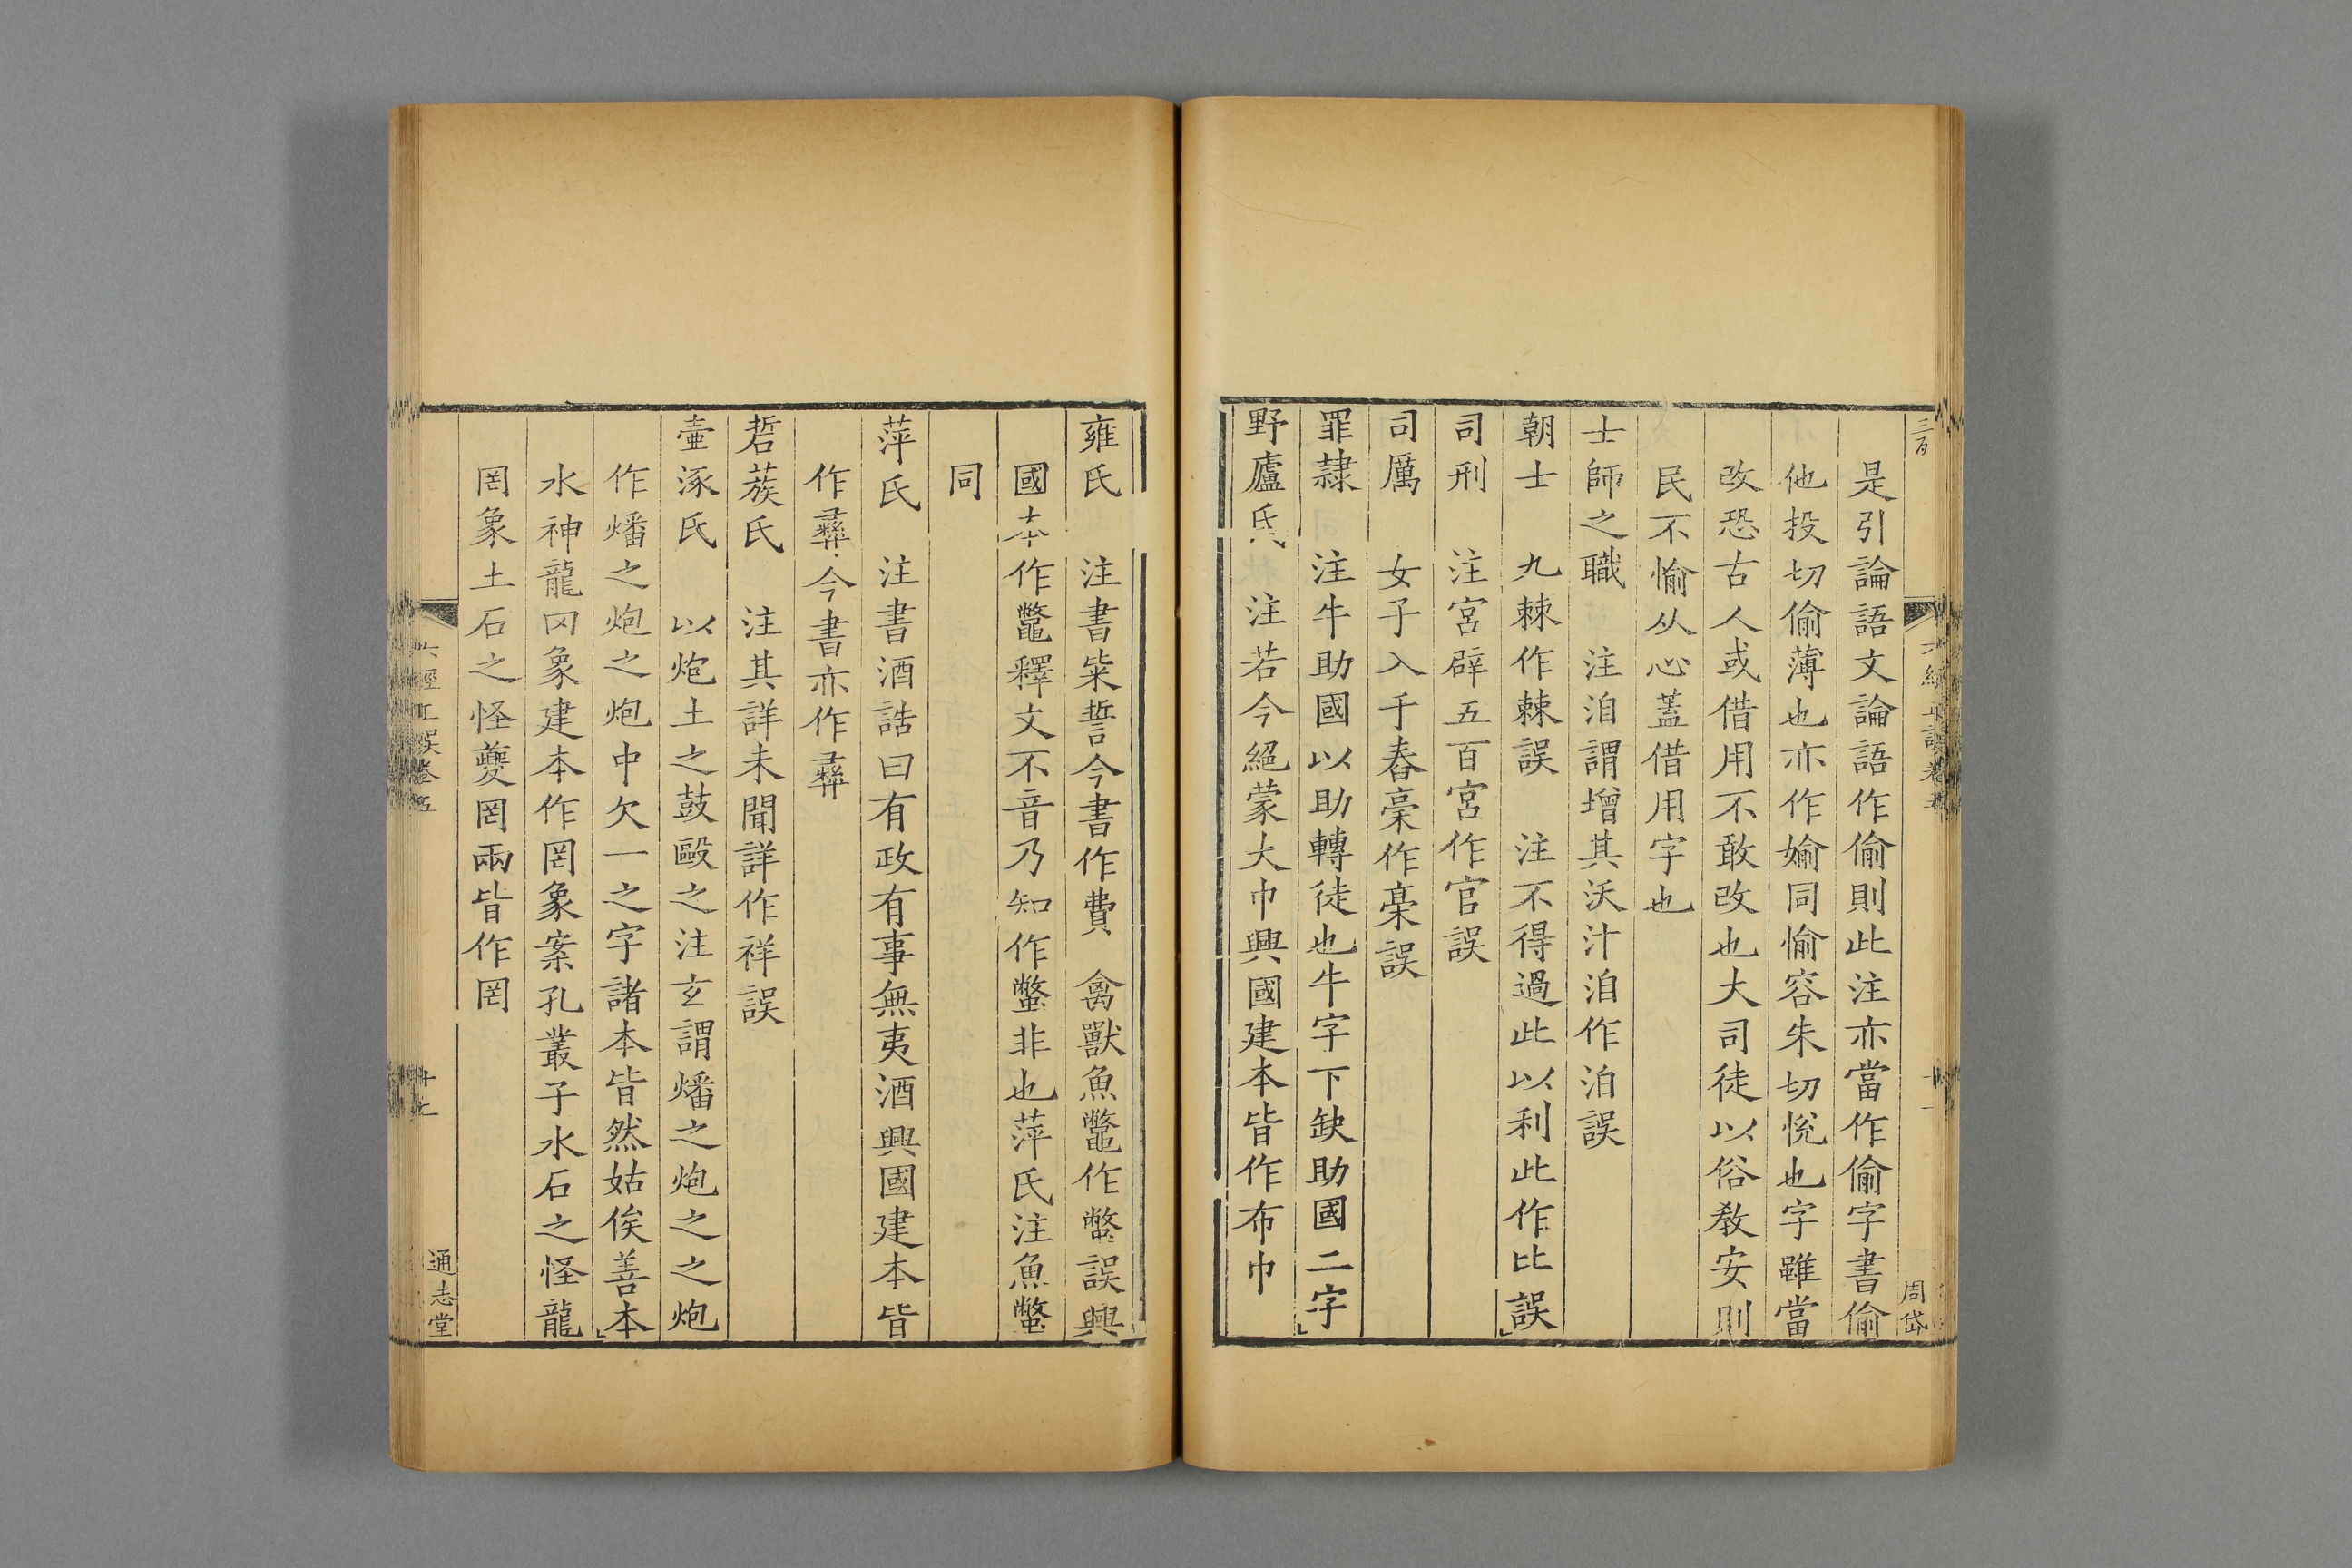 是引論語文論語作偷則此注亦當作偷字書偷
他投切偷薄也亦作媮同愉容朱切悅也字雖當
改恐古人或借用不敢改也大司徒以俗敎安則
民不愉从心蓋借用字也
士師之職 注洎謂增其沃汁洎作泊誤
朝士 九棘作棘誤 注不得過此以利此作比誤
司刑 注宮辟五百宮作官誤
司厲 女子入于舂槀作槀誤
罪隸 注牛助國以助轉徒也牛字下缺助國二字
野廬氏 注若今絕蒙大巾興國建本皆作布巾
周岱
雍氏 注書粊誓今書作費 禽獸魚鼈作鼈誤興
國本作鼈釋文不音乃知作鼈非也萍氏注魚鼈
同
萍氏 注書酒誥曰有政有事無夷酒興國建本皆
作彞今書亦作彞
硩蔟氏 注其詳未聞詳作祥誤
壷涿氏 以炮土之鼓毆之注玄謂燔之炮之之炮
作燔之炮之炮中欠一之字諸本皆然姑俟善本
水神龍罔象建本作罔象案孔叢子水石之怪龍
罔象土石之怪夔罔兩皆作罔
六經正誤卷五
通志堂